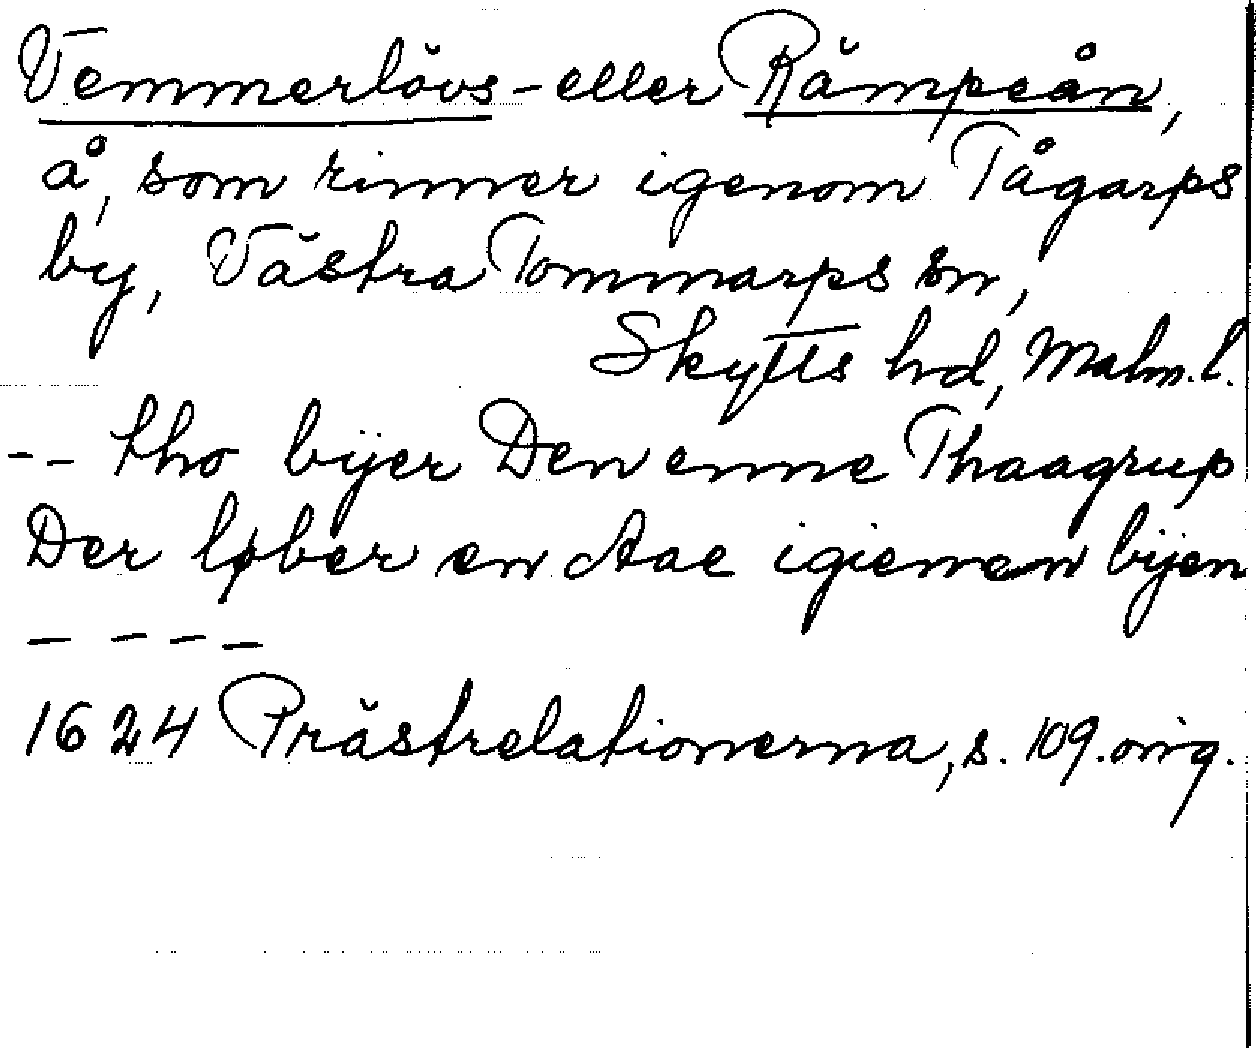 Vemmerlövs- eller Rämpeån,
å, som rinner igenom Tågarps
by, Västra Tommarps sn,
Skytts hd, Malm.l.
-- tho byer Den enne Thaagrup
Der løber en Aae igiemen byen
- - - -
1624 Prästrelationerna, s. 109. orig.